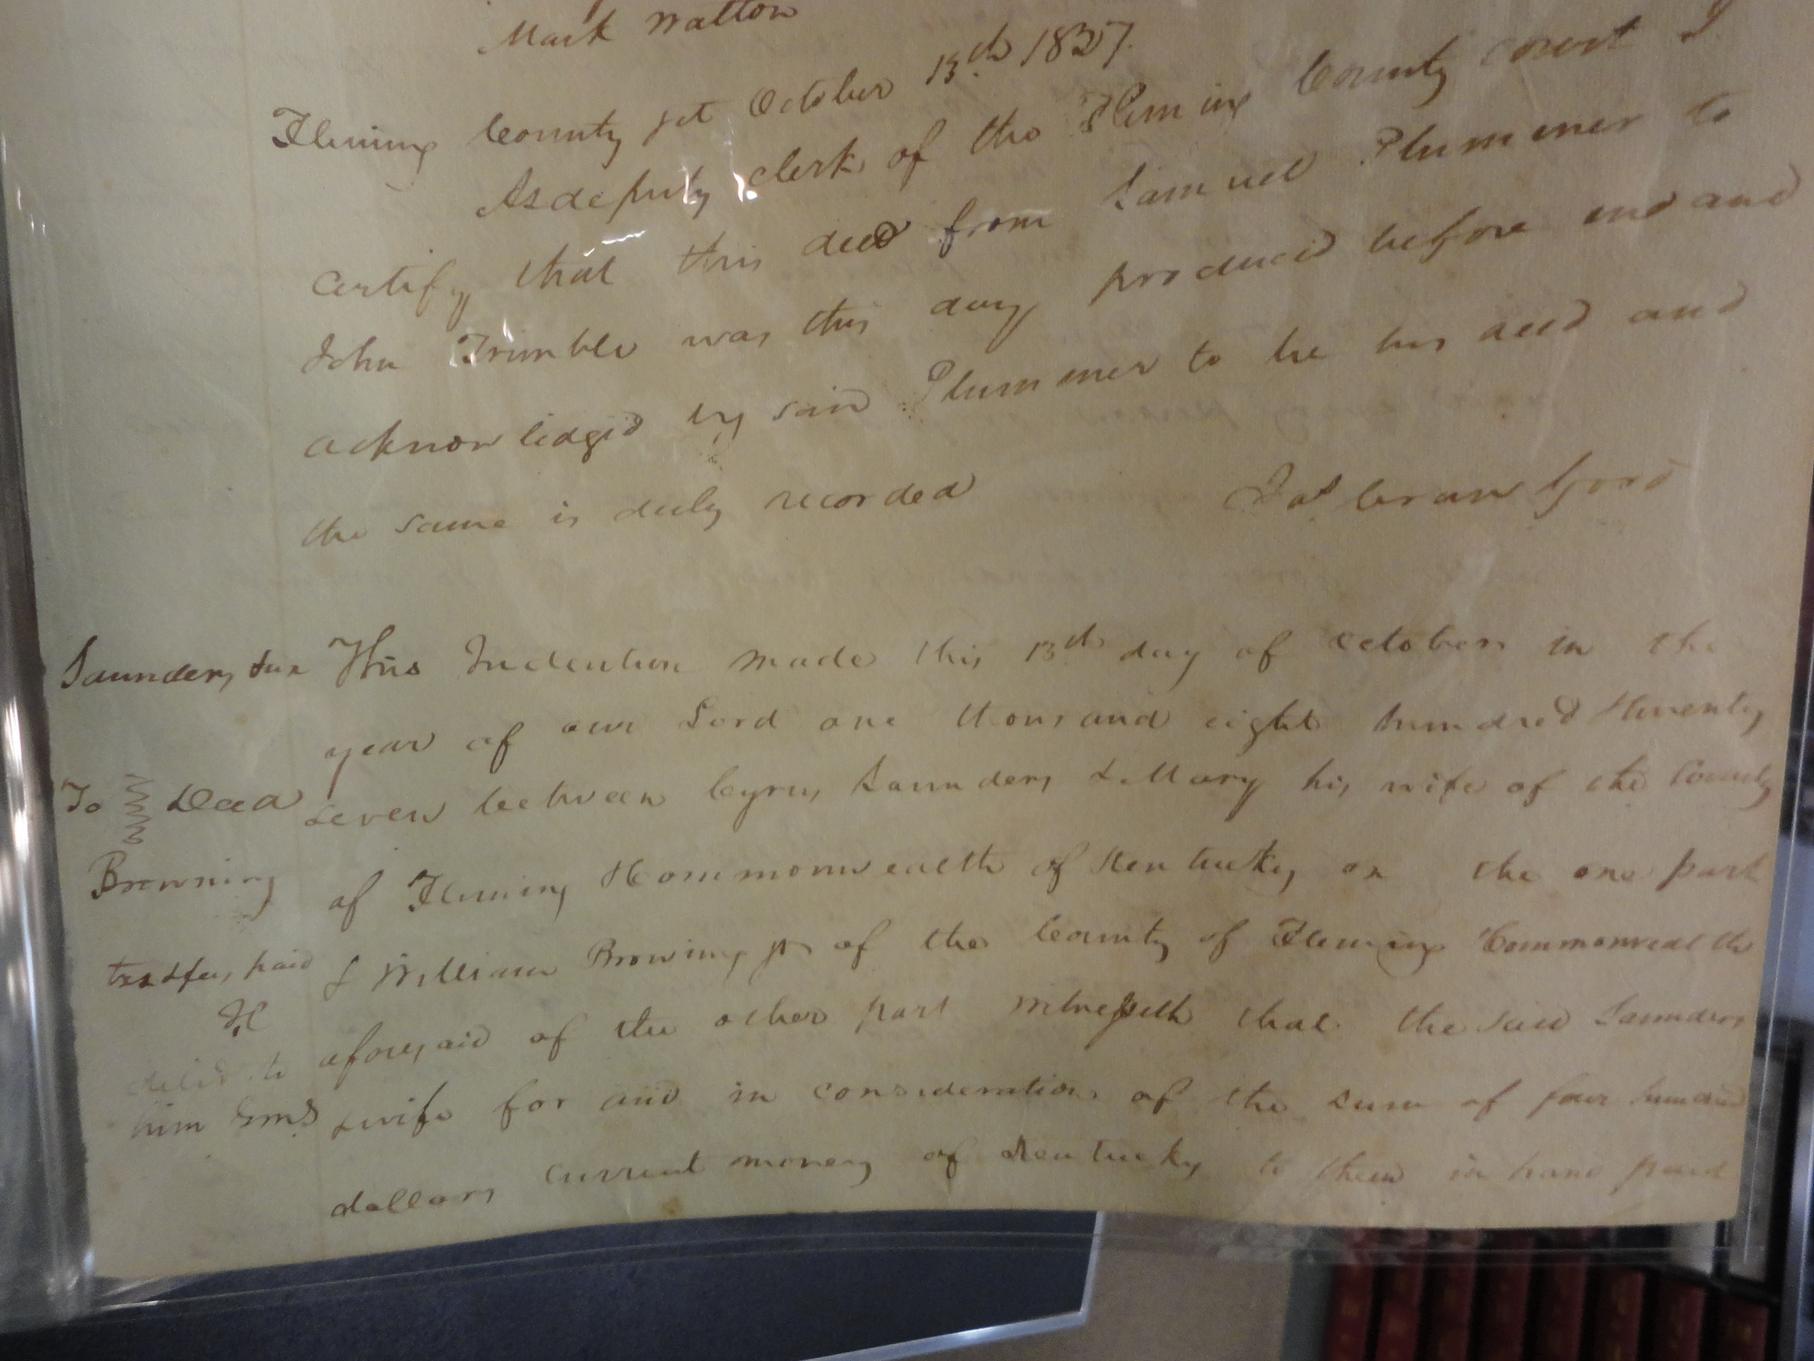 Mark Watton
Fleming County sct October 13th 1827.
As deputy clerk of the Fleming County court I
certify that this deed from Samuel Plummer to
John Trimble was this day produced before me and
acknowledged by said Plummer to be his deed and
the same is duly recorded Jas Crawford
Saunders & ux This Indenture made this 13th day of October in the
year of our Lord one thousand eight hundred & twenty
To Deed seven between Cyrus Saunders & Mary his wife of the County
Browning of Fleming & Commonwealth of Kentucky on the one part
tax & fees paid & William Browning jr of the County of Fleming & Commonwealth
aforesaid of the other part witnesseth that the said Saunders
deld to
him & wife for and in consideration of the sum of four hundred
dollars current money of Kentucky to them in hand paid